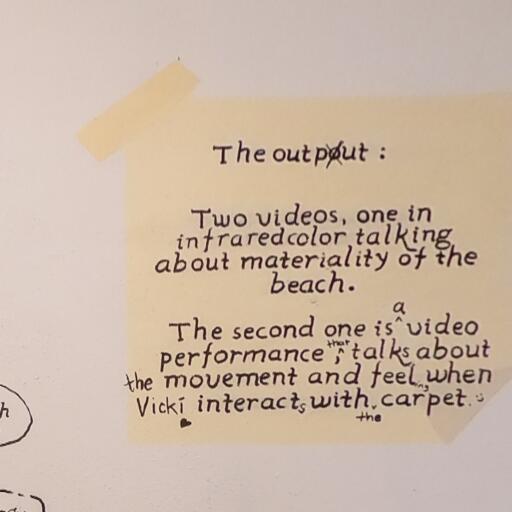 The output :
Two videos, one in
infraredcolor talking
about materiality of the
beach.
The second one is a video
performance that talks about
the movement and feeling when
Vicki interacts with the carpet.
h